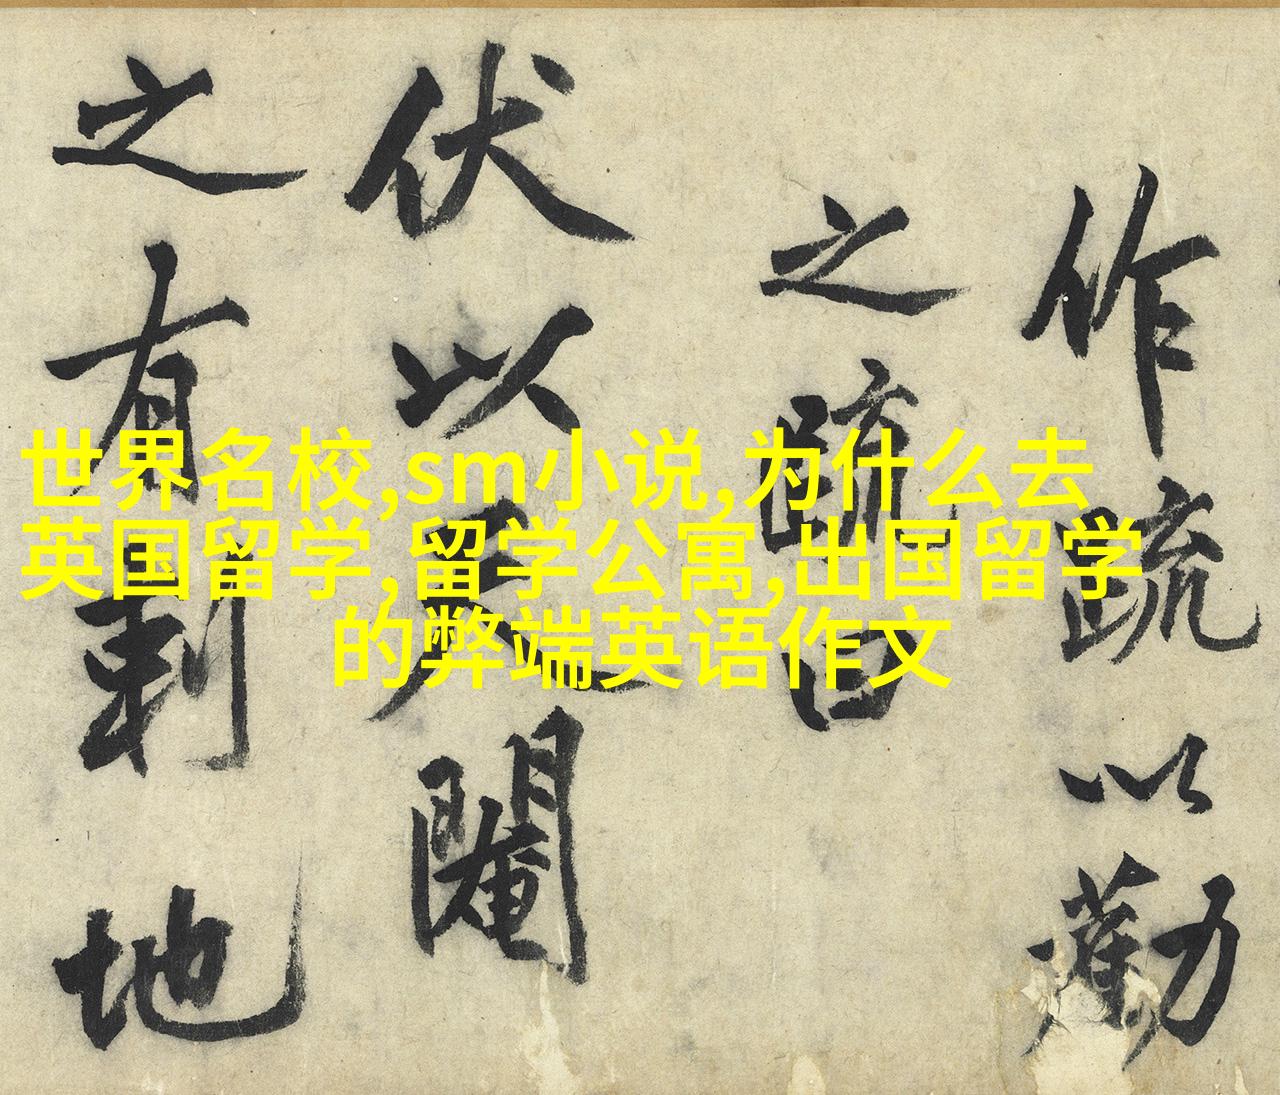 世界名校,sm小说,为什么去
英国留学,留学公寓,出国留学
的弊端英语作文
作疏以勸
之疏曰
伏以天閹
之有刺地